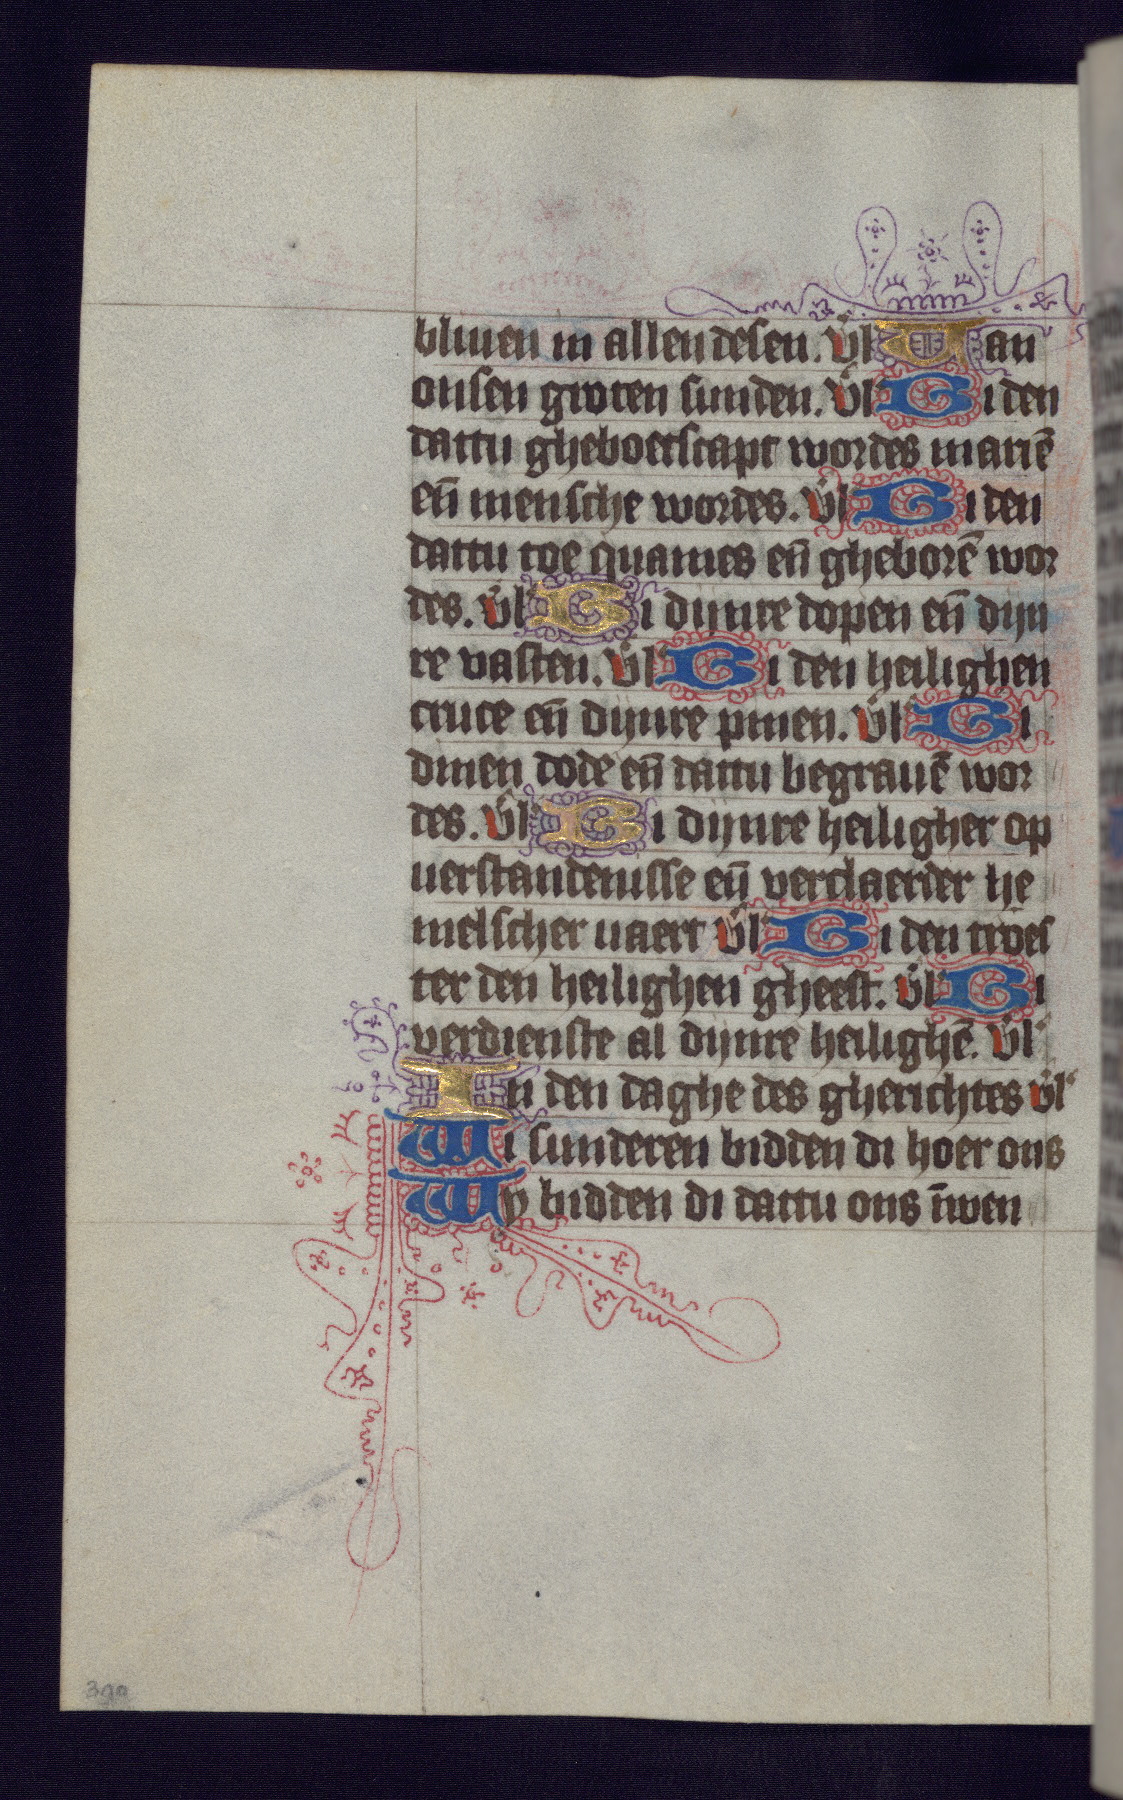 bliuen in allen desen. Vl Van
onsen groten sunden. Vl Bi den
dattu gheboetscapt wordes marиē
eñ mensche wordes. Vl Bi den
dattu toe quames eñ gheborē wor
des. Vl Bi dijnre dopen eñ dijn
re vasten. Vl Bi den heilighen
cruce eñ dijnre pinen. Vl Bi
dinen dode eñ dattu begrauē wor
des. Vl Bi dijnre heiligher op
uerstandenisse eñ verclaerder he
melscher uaert Vl Bi den troes
ter den heilighen gheest. Vl Bi
verdienste al dijnre heilighē. Vl
In den daghe des gherichtes Vl
Wi sunderen bidden di hoer ons
Wy bidden di dattu ons īwen
390